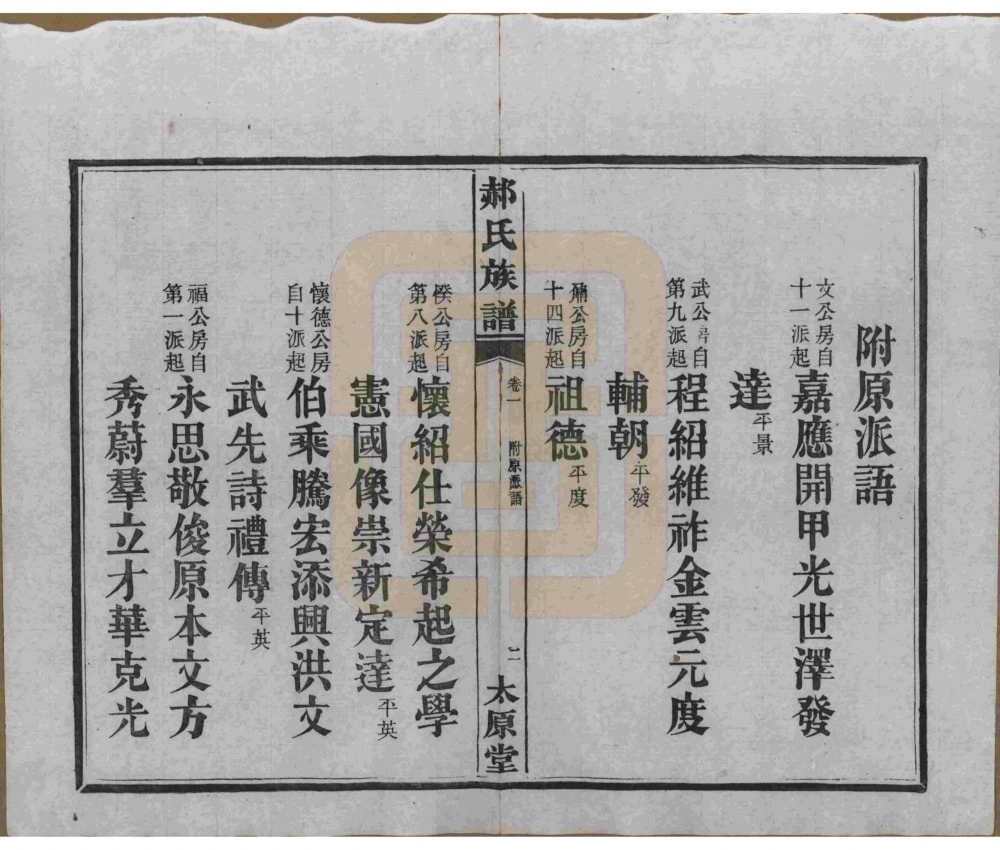 附原派語
文公房自十一派起嘉應開甲光世澤發
達平景
武公房自第九派起程紹維祚金雲元度
輔朝平發
公房自十四派起祖德平度
郝氏族譜 卷一 附原派語 二 太原堂
公房自第八派起懷紹仕榮希起之學
憲國像崇新定達平英
懷德公房自十派起伯乘騰宏添興洪文
武先詩禮傳平英
福公房自第一派起永思敬俊原本文方
秀蔚羣立才華克光